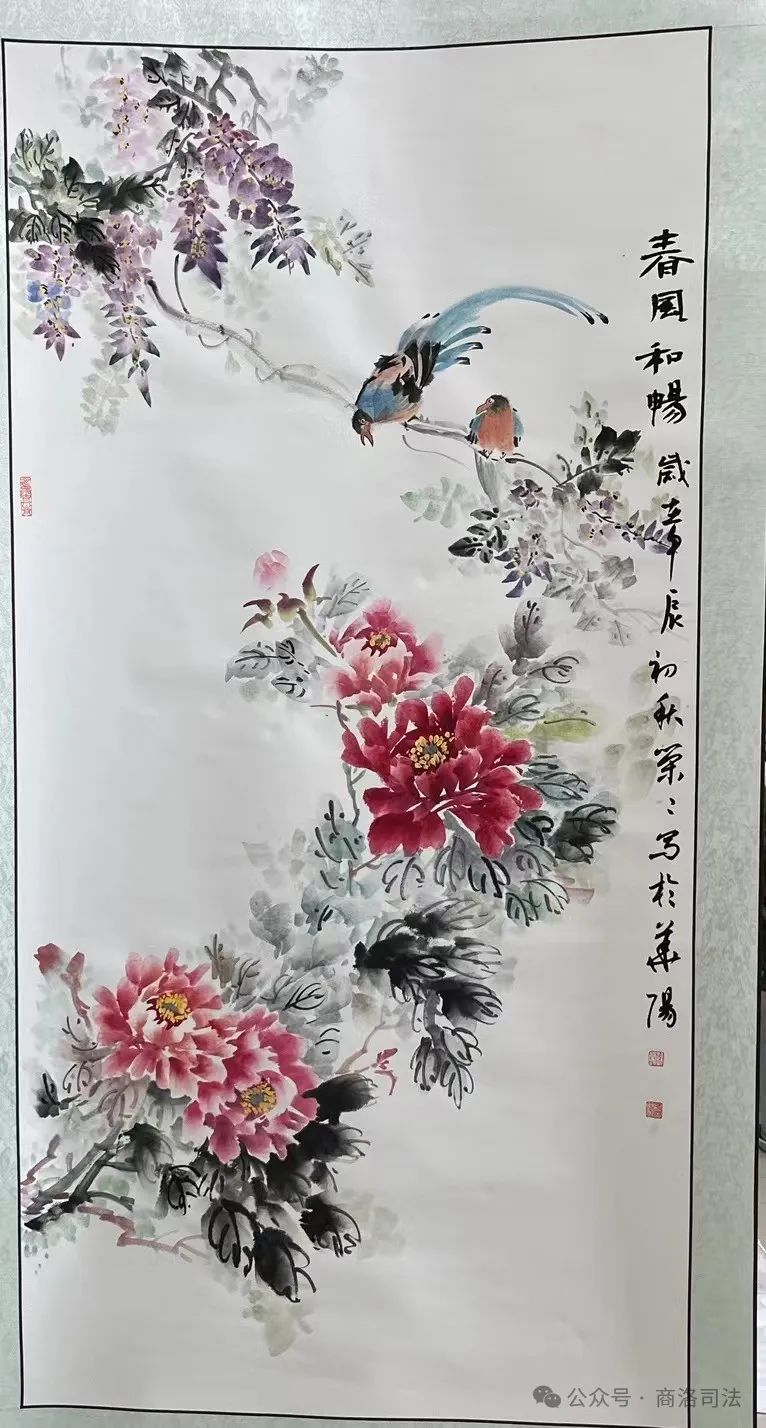 春風和暢 歲在甲辰初秋榮〻写於華陽
公众号·商洛司法